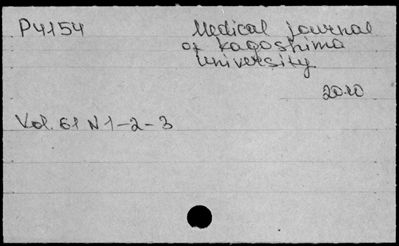 P4154
Medical journal
of Kagoshima
University
2010
Vol. 61 N 1-2-3